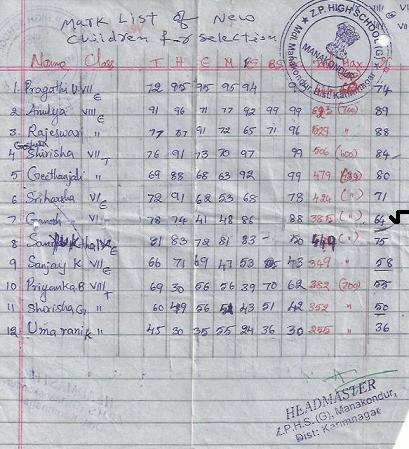 Mark List of New
Children for selection
Z.P. HIGH SCHOOL (G)
MANAKONDUR
Name Class T H E M PS BS
1 Pragathi U VII E 72 95 95 95 94 74
2 Anulya VIII E 91 96 71 77 92 99 99 623 (700) 89
3 Rajeswari " 91 72 65 71 96 529 " 88
4 Shirisha VII T 76 91 73 70 97 99 506 (600) 84
5 Geethanjali " 69 88 68 63 92 99 479 80
6 Sriharsha VI E 72 91 62 53 68 78 424 (") 71
7 Ganesh VI 78 74 41 48 86 88 385 (") 64
8 E 81 83 72 81 83 - (") 75
9 Sanjay K VII E 66 71 69 47 53 43 349 " 58
10 Priyanka B VIII T 69 30 56 56 39 70 62 382 (700) 55
11 Shirisha G " 60 49 56 43 51 42 352 " 50
12 Uma rani K " 45 30 35 55 24 36 30 255 " 36
HEADMASTER
Z.P.H.S. (G), Manakondur,
Dist: Karimnagar